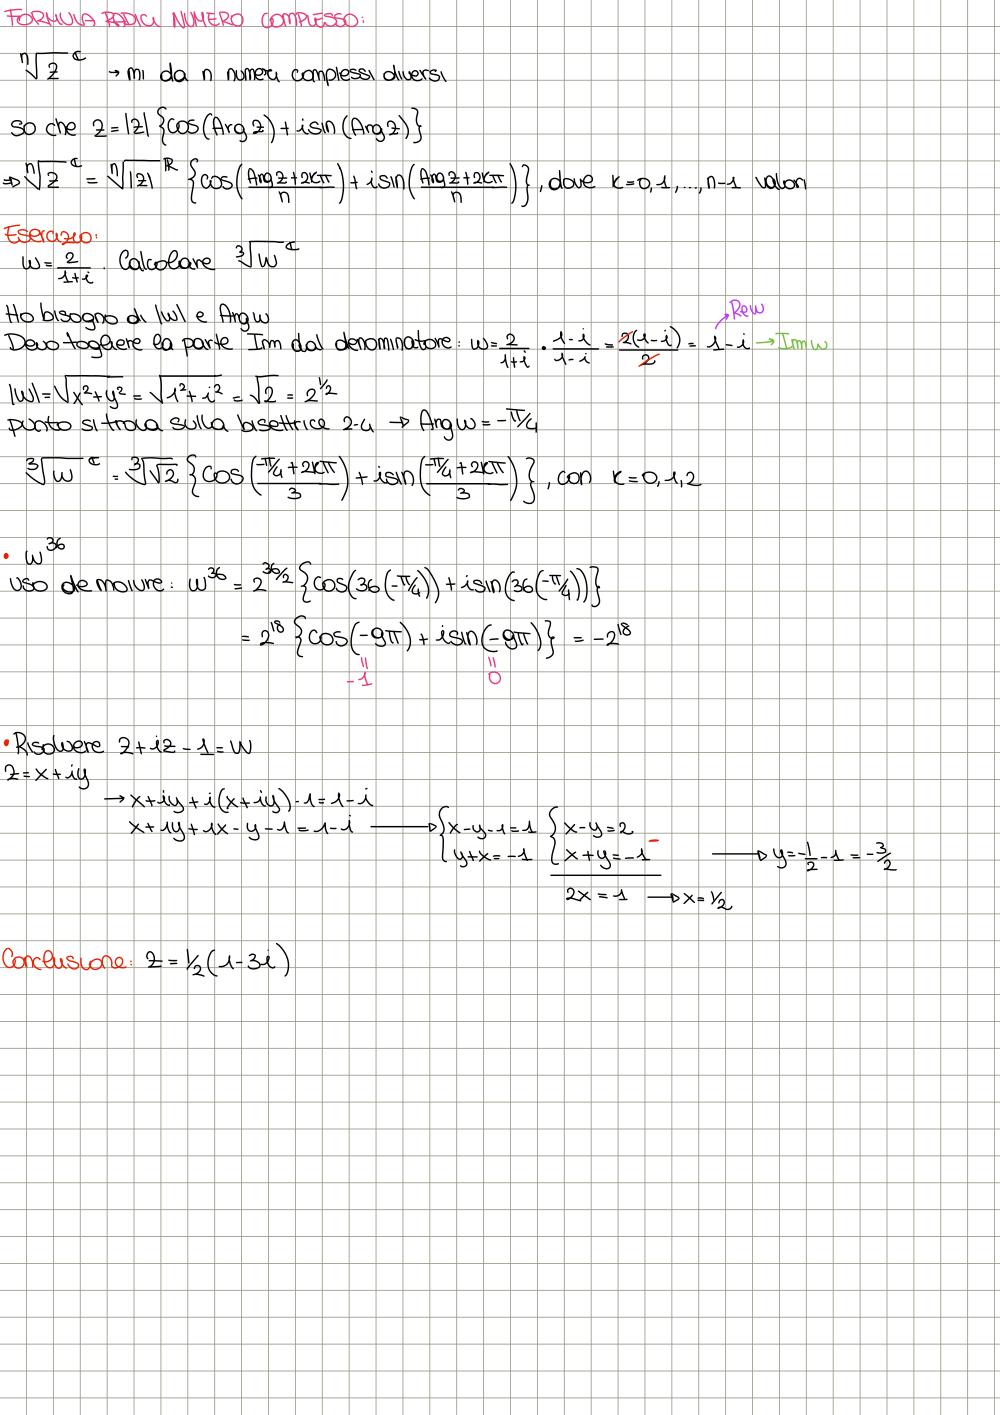 FORMULA RADICI NUMERO COMPLESSO:
ⁿ√z ^ℂ → mi da n numeri complessi diversi
so che z = |z| {cos(Arg z) + i sin(Arg z)}
⇒ ⁿ√z ^ℂ = ⁿ√|z| ^ℝ {cos((Arg z + 2kπ)/n) + i sin((Arg z + 2kπ)/n)}, dove k = 0, 1, ..., n-1 valori
Esercizio:
w = 2/(1+i). Calcolare ³√w ^ℂ
Ho bisogno di |w| e Arg w
Re w
Devo togliere la parte Imm dal denominatore: w = 2/(1+i) · (1-i)/(1-i) = 2(1-i)/2 = 1 - i → Imm w
|w| = √(x² + y²) = √(1² + i²) = √2 = 2^(1/2)
punto si trova sulla bisettrice 2-4 → Arg w = -π/4
³√w ^ℂ = ³√√2 {cos((-π/4 + 2kπ)/3) + i sin((-π/4 + 2kπ)/3)}, con k = 0, 1, 2
• w³⁶
uso de moivre: w³⁶ = 2^(36/2) {cos(36(-π/4)) + i sin(36(-π/4))}
= 2¹⁸ {cos(-9π) + i sin(-9π)} = -2¹⁸
= =
-1 0
• Risolvere z + iz - 1 = w
z = x + iy
→ x + iy + i(x + iy) - 1 = 1 - i
x + iy + ix - y - 1 = 1 - i → { x - y - 1 = 1 { x - y = 2
y + x = -1 x + y = -1 - → y = -1/2 - 1 = -3/2
2x = 1 → x = 1/2
Conclusione: z = 1/2 (1 - 3i)